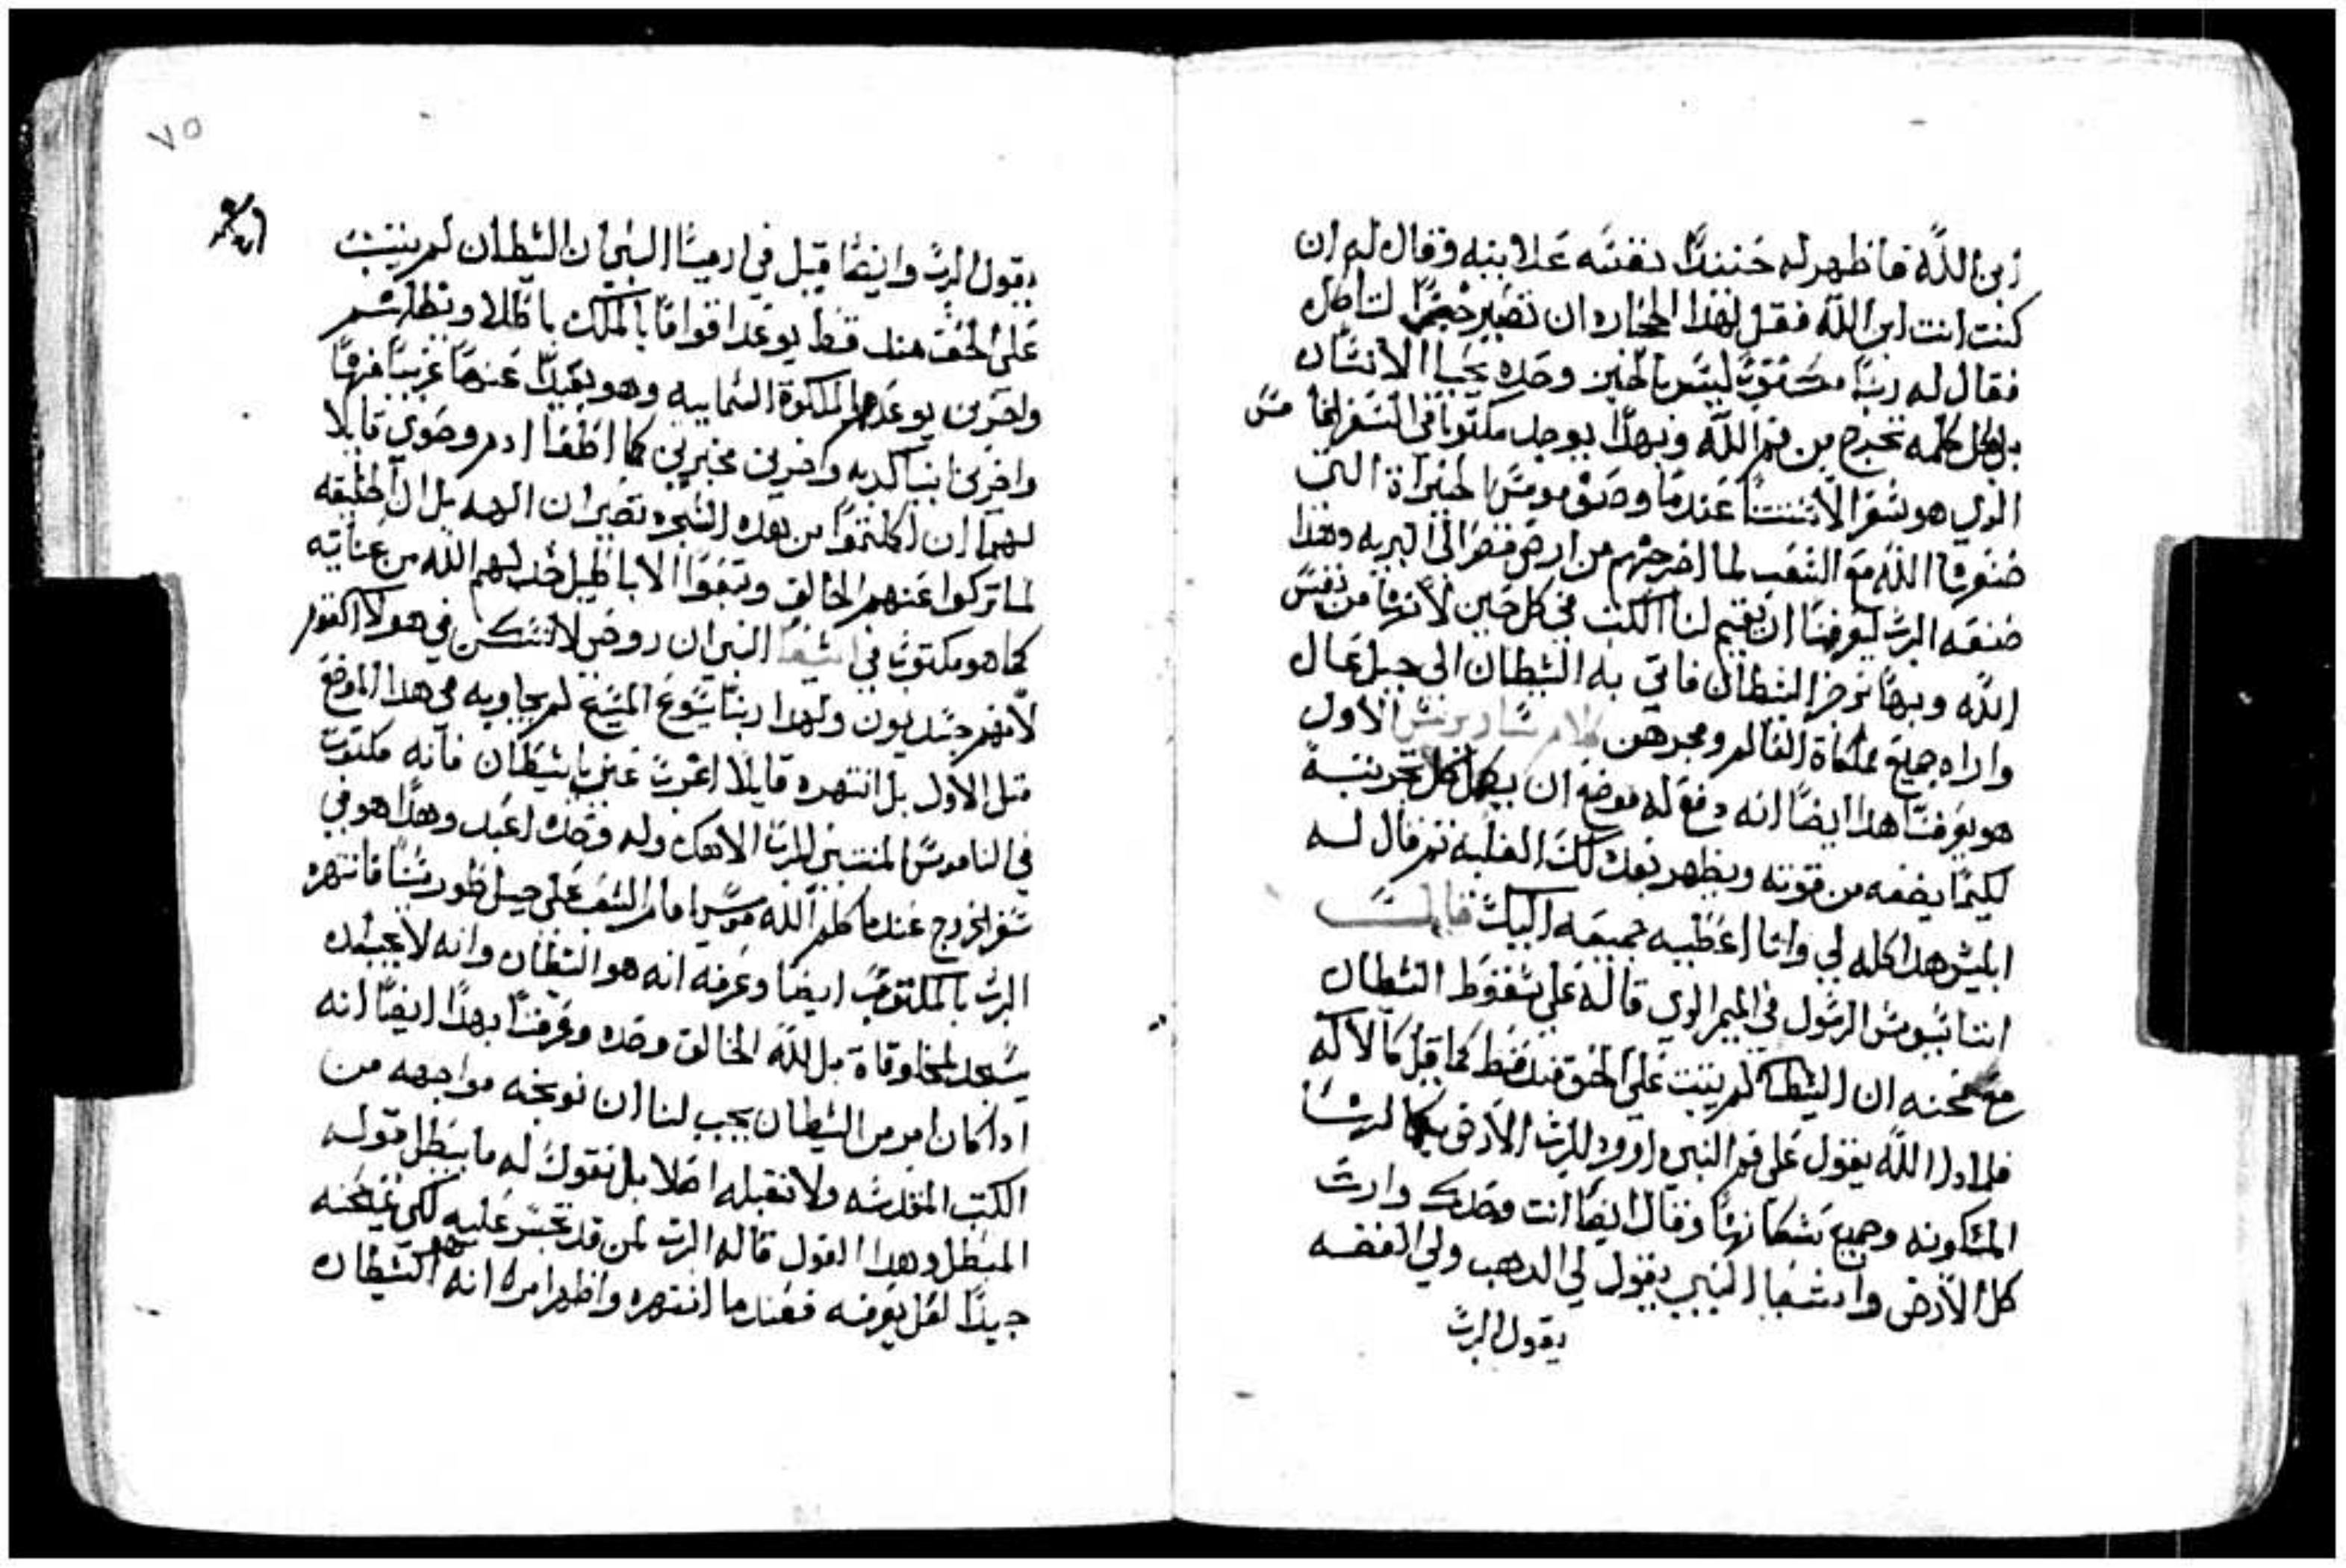 ابن الله فاظهر له حنيندا نفسه علابنه وقال له ان
كنت انت ابن الله فقل لهذا الحجاره ان تصير خبزا لتاكل
فقال له ربنا مكتوب ليس بالخبز وحده يحيا الانسان
بل بكل كلمه تخرج من فم الله وبهذا يوجد مكتوبا في السفر الخامس
الدي هو سفر الاستثنا عندما وصف موسى الخيراة التي
صنعها الله مع الشعب لما اخرجهم من ارض مصر الى البريه وهذا
صنعه الرب ليعرفنا ان نقيم لنا الكتب في كل حين لانها من نفس
الله وبها نرجز الشطان فاتي به الشطان الى جبل عال
واراه جميع مملكاة العالم ومجدهن كلام ساويرس الاول
هو يعرفنا هدا ايضا انه دفع له موضع ان يكمل كل تجربته
لكيما يضعه من قوته ويظهر بعد دلك الغلبه ثم قال له
ابليس هدا كله لي وانا اعطيه جميعه اليك قال
اتناسيوس الرسول في الميمر الدي قاله على سقوط الشطان
مع محنه ان الشطان لم يثبت على الحق منه قط كما قبل كالاكه
فلادا الله يقول على فم النبي داوود للرب الارض بكمالها
المسكونه وجميع سكانها وقال ايضا انت وحدك وارث
كل الارض واشعيا النبي يقول لي الدهب ولي الفضه
يقول الرب
٧٥
يقول الرب وايضا قيل في ارميا النبي ان الشطان لم يثبت
على الحق منه قط يوعد اقواما بالملك باطلا
واخرين يوعدهم الملكوة السماييه وهو بعيدا عنها غريبا منها
واخرين انبيا كدبه واخرين مخبرين كما اطغا ادم وحوى قايلا
لهما ان اكلتموا من هده الشجره تصيران الهه بل ان الخليقه
لما تركوا عنهم الخالق وتبعوا الاباطيل خدلهم الله من عنايته
كما هو مكتوب في اشعيا النبي ان روحي لا تسكن في هولا القوم
لانهم جسديون ولهدا ربنا يسوع المسيح لم يجاوبه في هدا الموضع
مثل الاول بل انتهره قايلا اغرب عني يا شيطان فانه مكتوب
في الناموس للرب الاهك وله وحده اعبد وهدا هو في
سفر الخروج عندما كلم الله موسى امام الشعب على جبل طور سينا فانتهره
الرب بالمكتوب ايضا وعرفه انه هو الشطان وانه لا يجب ان
يسجد لمخلوقاة بل لله الخالق وحده وعرفنا بهدا ايضا انه
ادا كان امر من الشيطان يجب لنا ان نوبخه مواجهه من
الكتب المقدسه ولا نقبله اصلا بل نقول له ما يبطل قوله
المبطل وهدا القول قاله الرب لمن قد تجسر عليه لكي يمتحنه
جيدا لعل يعرفه فعندما انتهره واظهر امره انه الشيطان